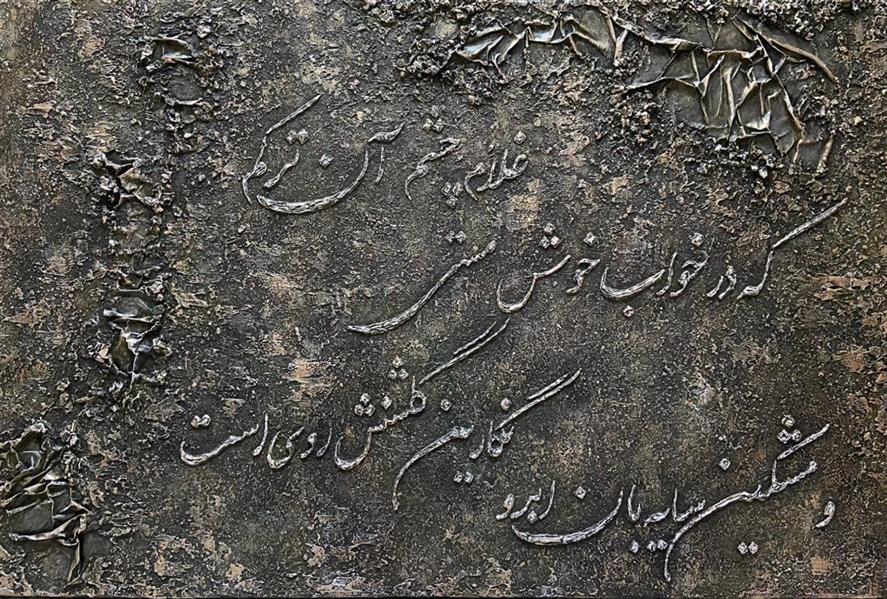 غلام چشم آن ترکم
که در خواب خوش مستی
نگارین گلشنش روی است
و مشکین سایه بان ابرو